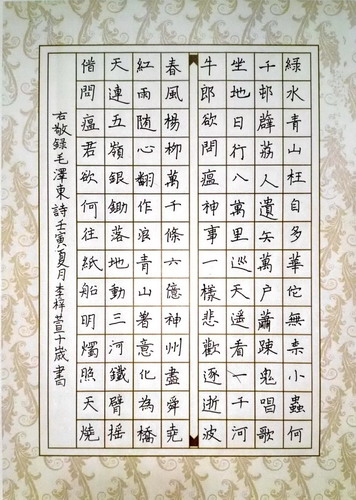 綠水青山枉自多華佗無奈小蟲何
千邨薜荔人遺矢萬户蕭踈鬼唱歌
坐地日行八萬里巡天遥看一千河
牛郎欲問瘟神事一樣悲歡逐逝波
春風楊柳萬千條六億神州盡舜堯
紅雨随心翻作浪青山著意化為橋
天連五嶺銀鋤落地動三河鐵臂摇
借問瘟君欲何往紙船明燭照天燒
右敬錄毛澤東詩壬寅夏月李梓萱十歲書